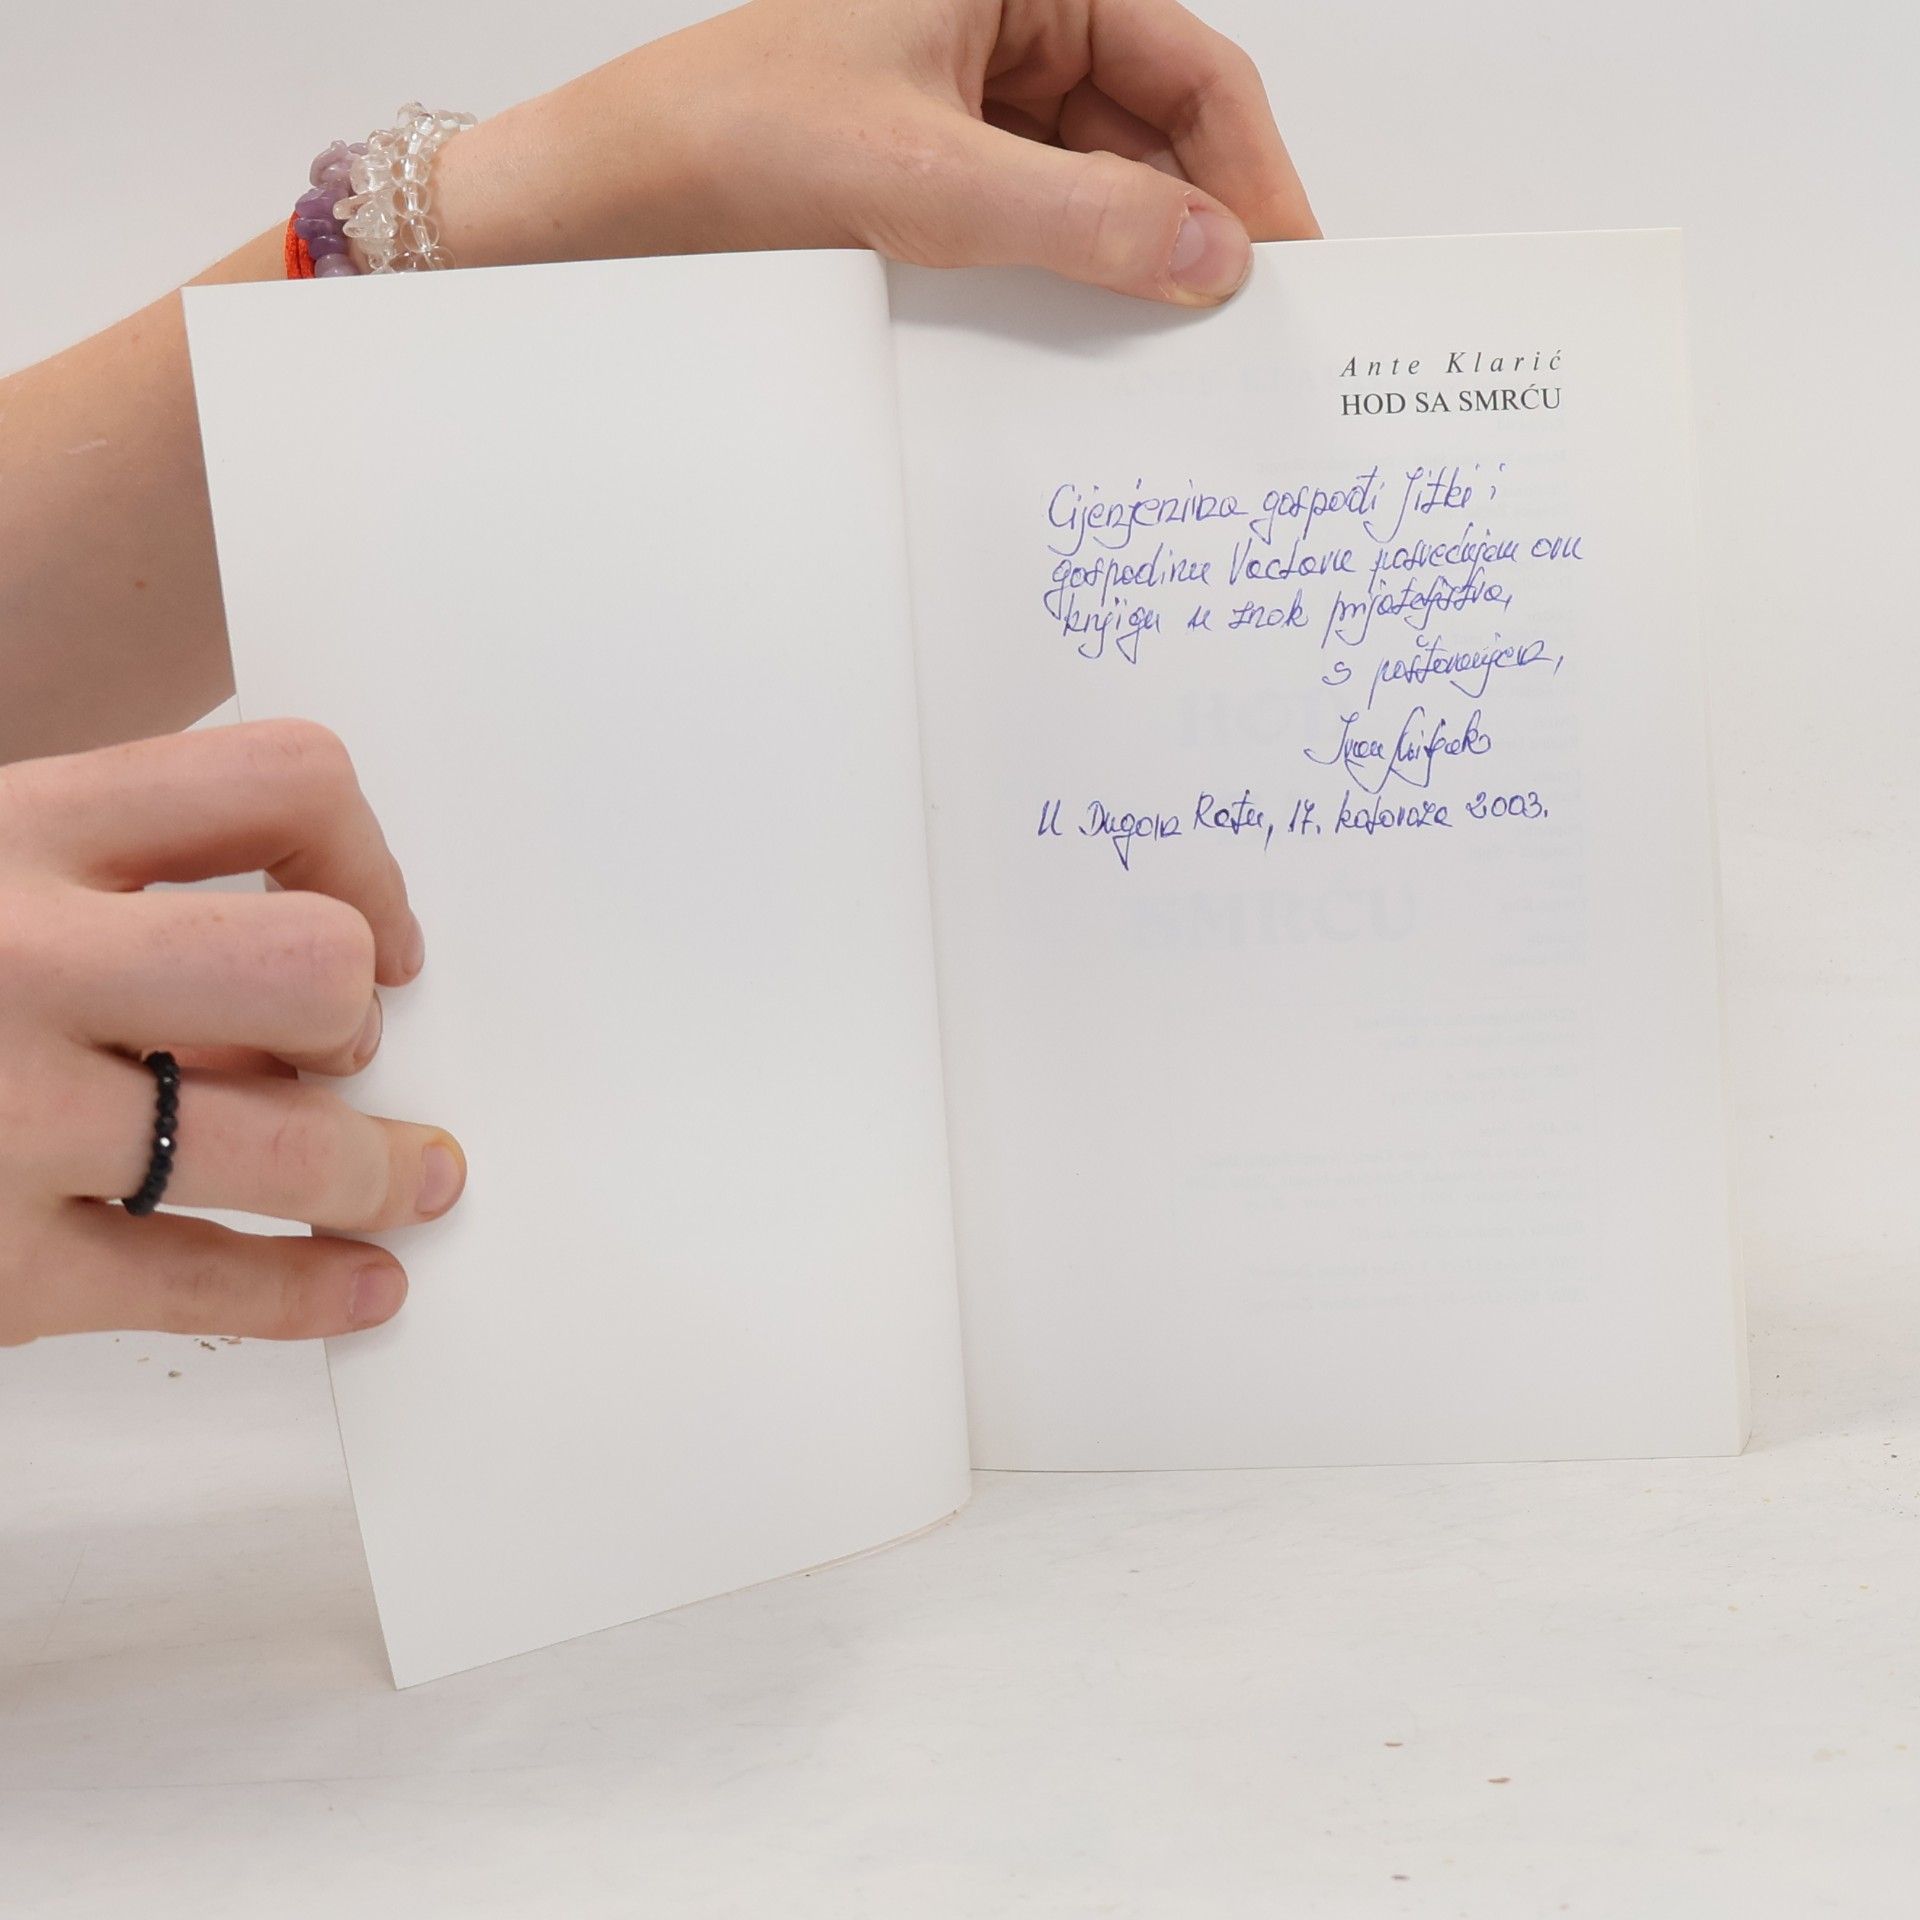 Ante Klarić
HOD SA SMRĆU
Cijenjenima gospođi Jitki i
gospodinu Vaclavu posvećujem ovu
knjigu u znak prijateljstva,
s poštovanjem,
Ivan
U Dugom Ratu, 17. kolovoza 2003.